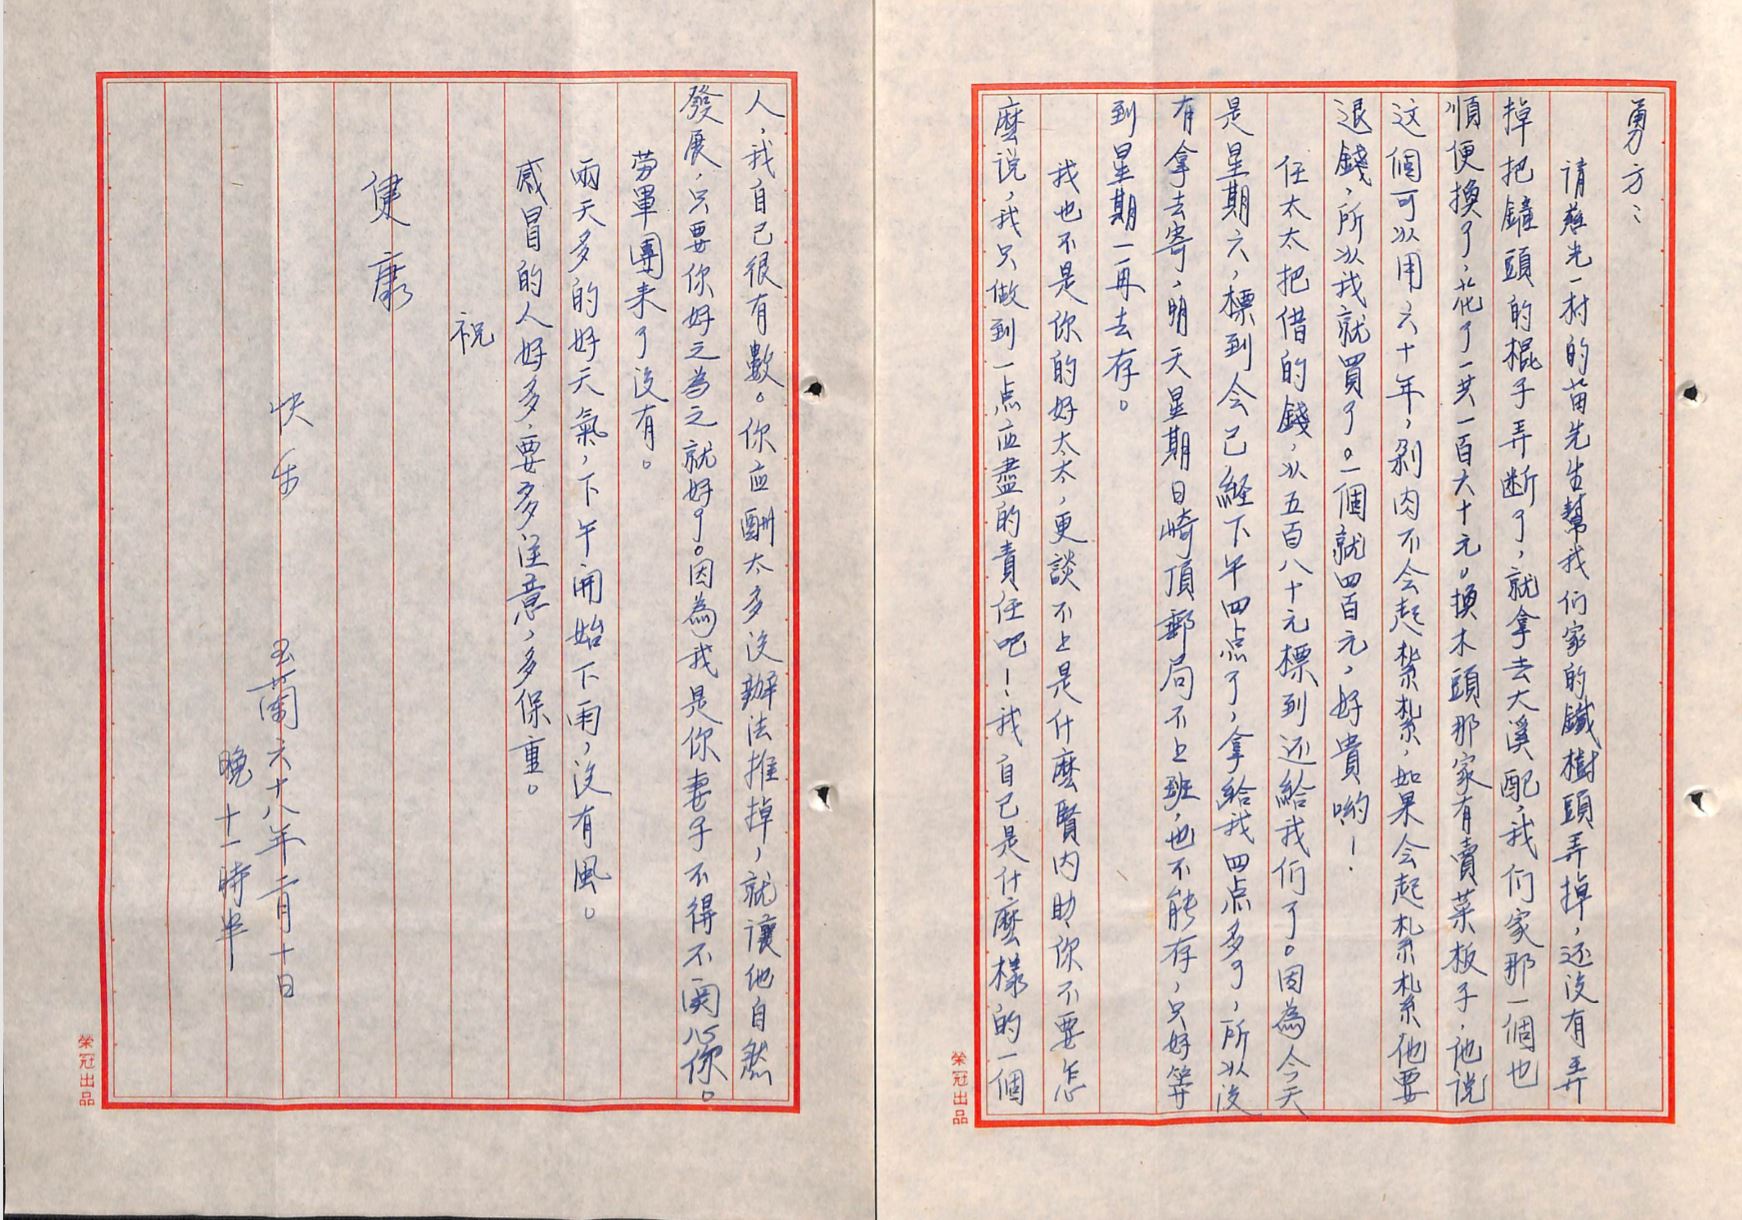 勇方：
請慈光一村的苗先生幫我们家的鐵樹頭弄掉，还沒有弄
掉把鏟頭的棍子弄断了，就拿去大溪配，我们家那一個也
順便換了，花了一共一百六十元。換木頭那家有賣菜板子，他说
这個可以用六十年，剁肉不会起紮紮，如果会起紮紮他要
退錢，所以我就買了。一個就四百元，好貴喲！
任太太把借的錢，以五百八十元標到还給我们了。因為今天
是星期六，標到会已經下午四点了，拿給我四点多了，所以沒
有拿去寄，明天星期日崎頂郵局不上班，也不能存，只好等
到星期一再去存。
我也不是你的好太太，更談不上是什麼賢内助，你不要怎
麼说，我只做到一点应盡的責任吧！我自己是什麼樣的一個
人，我自己很有數。你应酬太多沒辦法推掉，就讓他自然
發展，只要你好之為之就好了。因為我是你妻子不得不関心你。
労軍團来了沒有。
兩天多的好天氣，下午開始下雨，沒有風。
感冒的人好多，要多注意，多保重。
祝
健康
快乐
玉蘭六十八年二月十日
晚十一時半
榮冠出品
榮冠出品